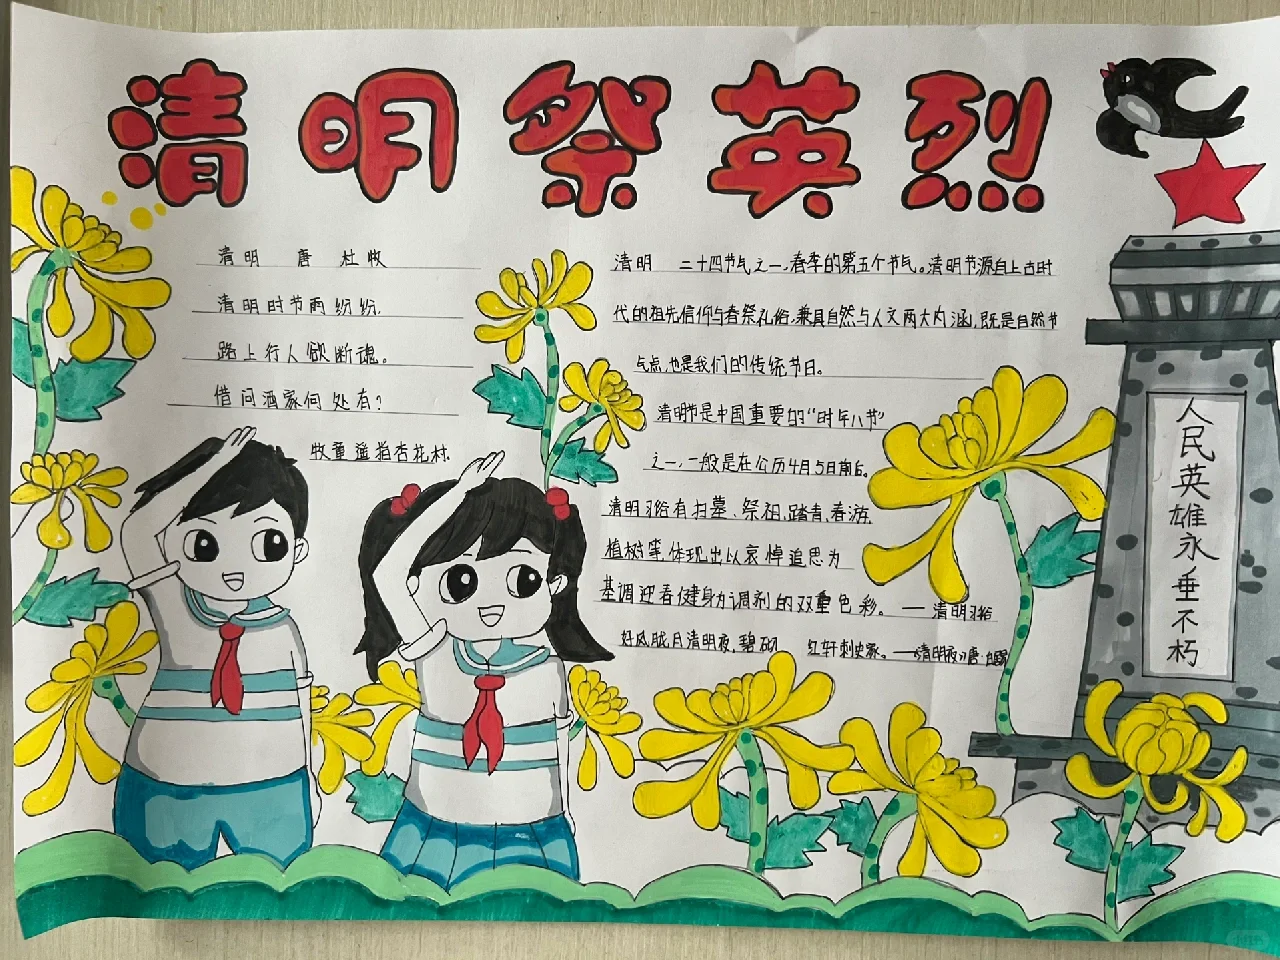 清明祭英烈
清明 唐 杜牧
清明时节雨纷纷,
路上行人欲断魂。
借问酒家何处有?
牧童遥指杏花村.
清明 二十四节气之一,春季的第五个节气。清明节源自上古时
代的祖先信仰与春祭礼俗,兼具自然与人文两大内涵,既是自然节
气点,也是我们的传统节日。
清明节是中国重要的“时年八节”
之一,一般是在公历4月5日前后。
清明习俗有扫墓、祭祖,踏青,春游,
植树等,体现出以哀悼追思为
基调迎春健身为调剂的双重色彩。——清明习俗
好风胧月清明夜,碧砌 红轩刺史家。——《清明夜》唐·白居易
人民英雄永垂不朽